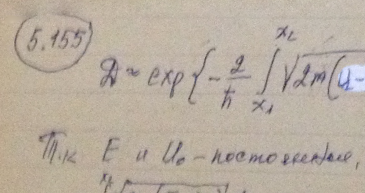 5.155
D ≈ exp{-2/ħ ∫ x₁ x₂ √2m(U-
Т.к E и U₀ - постоянные,